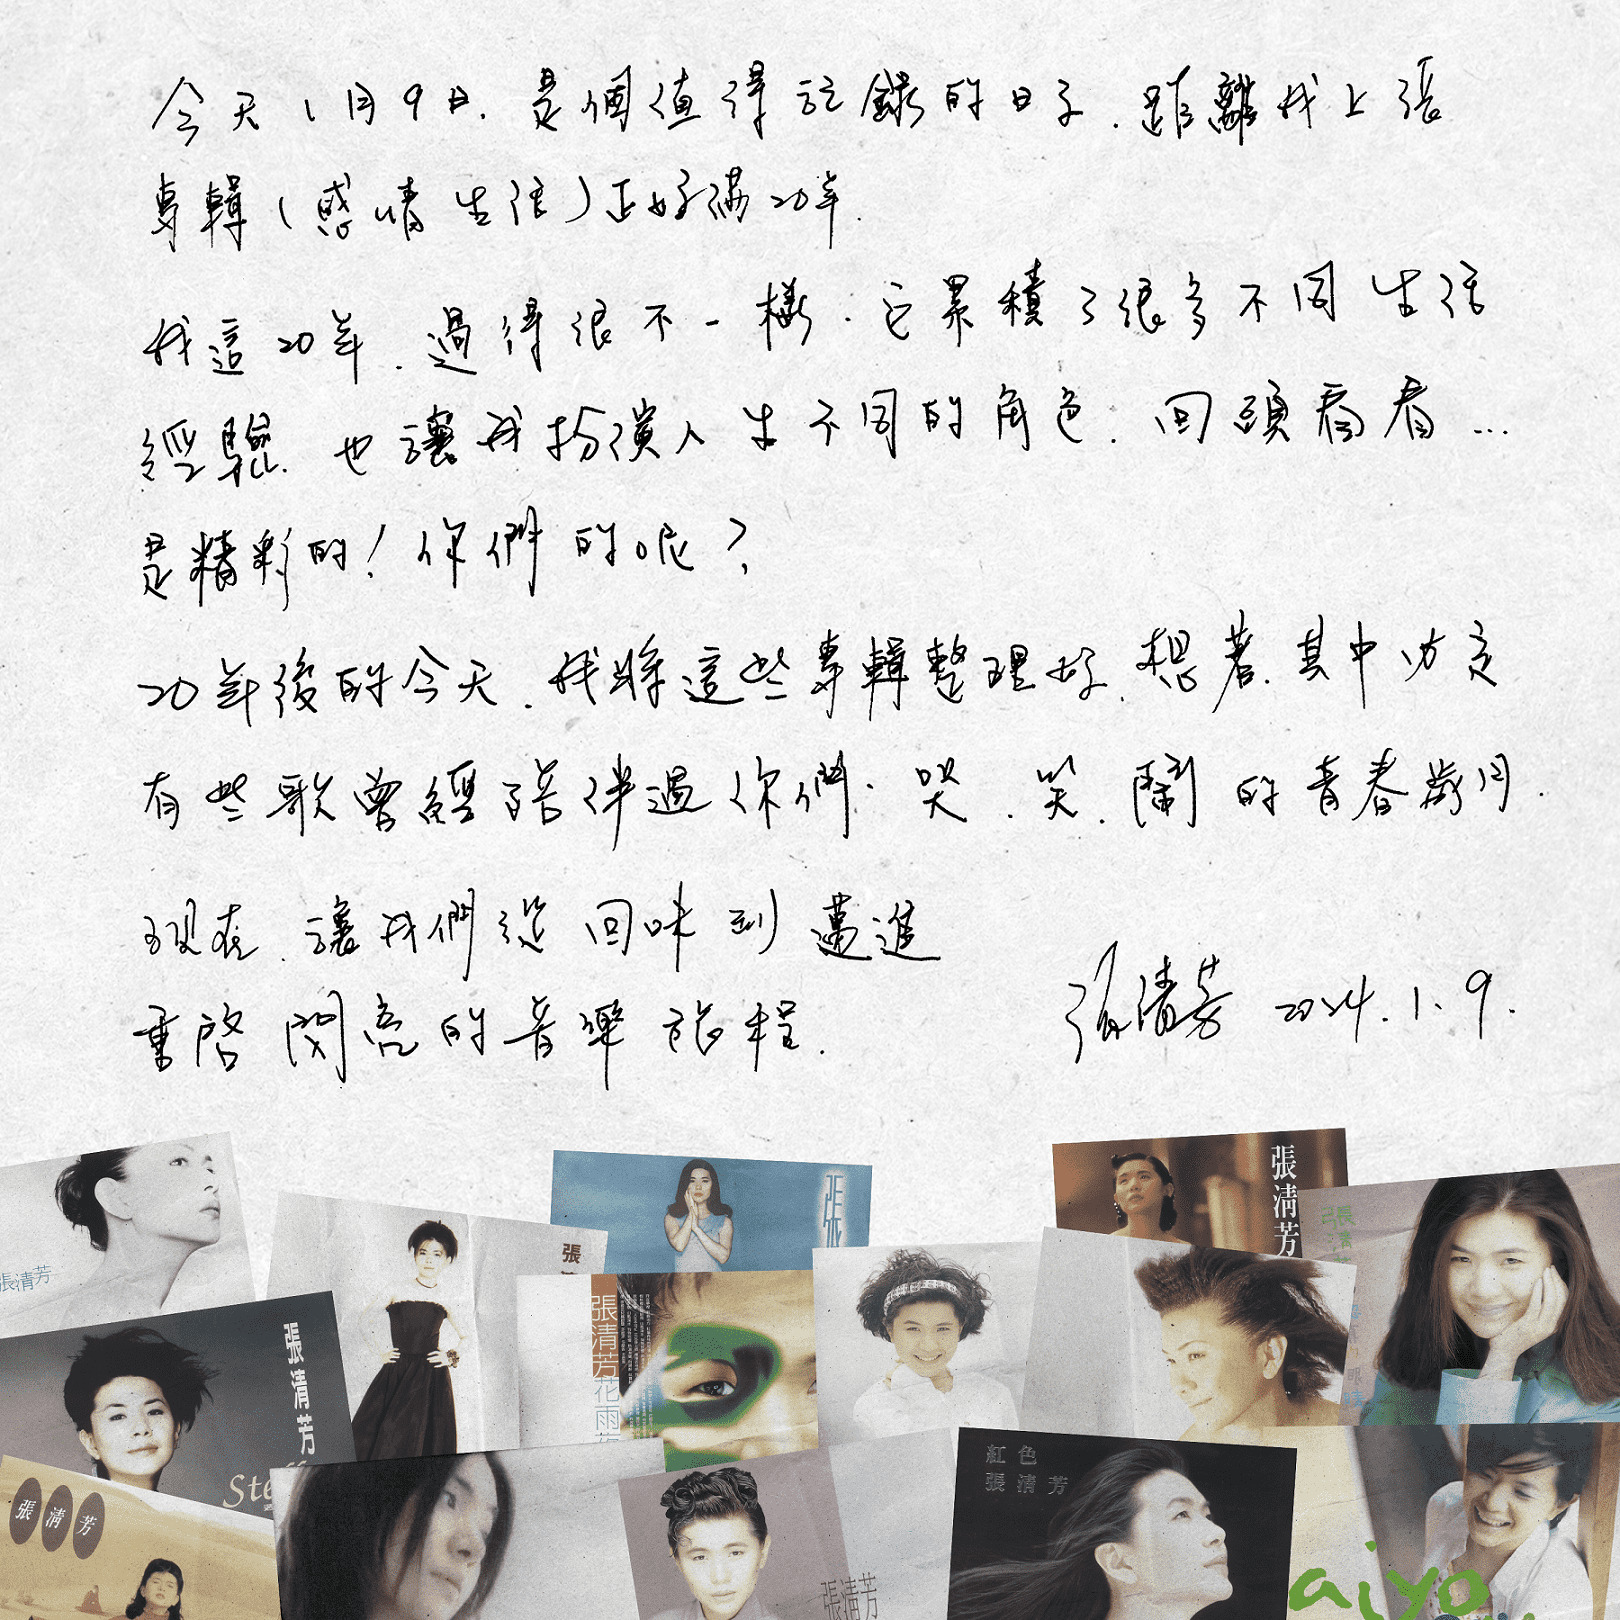 今天1月9日，是個值得記錄的日子，距離我上張
專輯（感情生活）正好滿20年。
我這20年，過得很不一樣，它累積了很多不同生活
經驗，也讓我扮演人生不同的角色，回頭看看...
是精彩的！你們的呢？
20年後的今天，我將這些專輯整理好，想著，其中必定
有些歌曾經陪伴過你們，哭、笑、鬧的青春歲月。
現在，讓我們從回味到邁進
重啓閃亮的音樂旅程。
張清芳 2024.1.9.
張清芳
張
張
張清芳
張清芳
張清芳花雨
張清芳
張清芳
紅色
張清芳
張清芳
aiyo